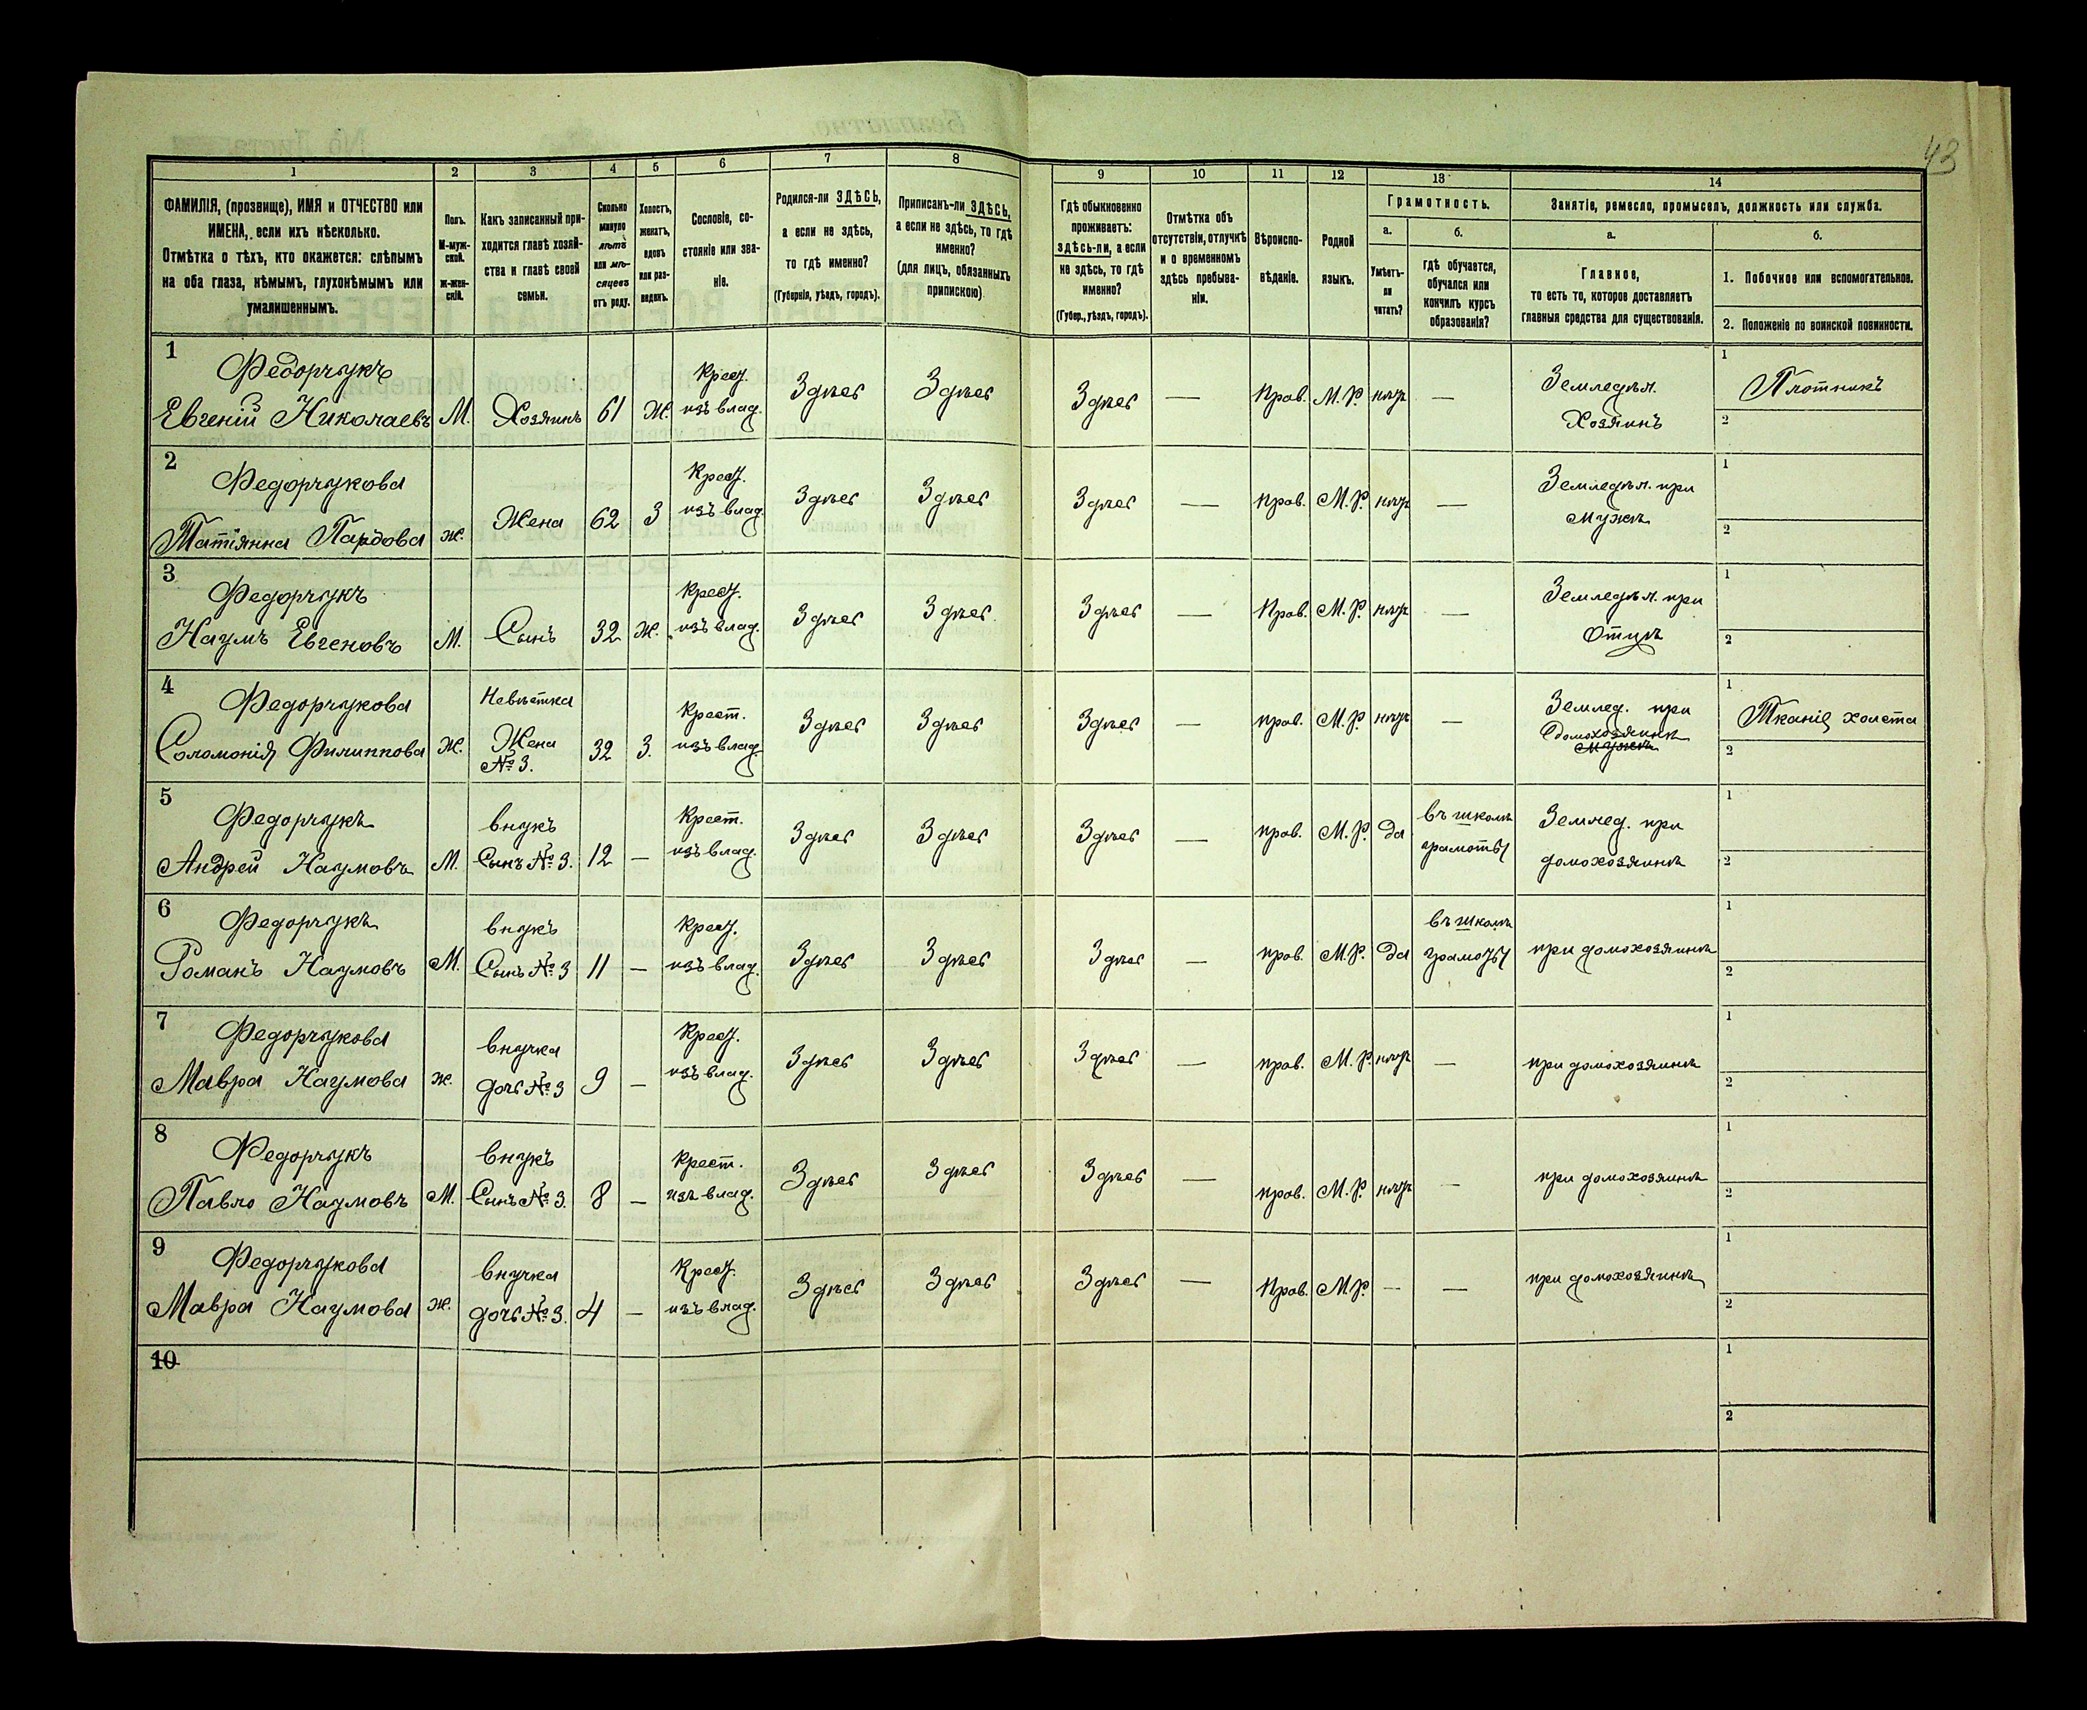 43
1 2 3 4 5 6 7 8 9 10 11 12 13 14
ФАМИЛІЯ, (прозвище), ИМЯ и ОТЧЕСТВО или
ИМЕНА, если ихъ нѣсколько.
Отмѣтка о тѣхъ, кто окажется: слѣпымъ
на оба глаза, нѣмымъ, глухонѣмымъ или
умалишеннымъ.
Полъ.
М-муж-
ской.
ж-жен-
скій.
Какъ записанный при-
ходится главѣ хозяй-
ства и главѣ своей
семьи.
Сколько
минуло
лѣтъ
или мѣ-
сяцевъ
отъ роду.
Холостъ,
женатъ,
вдовъ
или раз-
веденъ.
Сословіе, со-
стояніе или зва-
ніе.
Родился-ли ЗДѢСЬ,
а если не здѣсь,
то гдѣ именно?
(Губернія, уѣздъ, городъ).
Приписанъ-ли ЗДѢСЬ,
а если не здѣсь, то гдѣ
именно?
(для лицъ, обязанныхъ
припискою)
Гдѣ обыкновенно
проживаетъ:
здѣсь-ли, а если
не здѣсь, то гдѣ
именно?
(Губер., уѣздъ, городъ).
Отмѣтка объ
отсутствіи, отлучкѣ
и о временномъ
здѣсь пребыва-
ніи.
Вѣроиспо-
вѣданіе.
Родной
языкъ.
Грамотность.
а.
Умѣетъ-
ли
читать?
б.
Гдѣ обучается,
обучался или
кончилъ курсъ
образованія?
Занятіе, ремесло, промыселъ, должность или служба.
а.
Главное,
то есть то, которое доставляетъ
главныя средства для существованія.
б.
1. Побочное или вспомогательное.
2. Положеніе по воинской повинности.
1
Федорчукъ
Евгеній Николаевъ М. Хозяинъ 61 Ж. Крест. изъ влад. Здѣсь Здѣсь Здѣсь — Прав. М.Р. нѣтъ — Земледѣл. Хозяинъ 1 Плотникъ 2
2
Федорчукова
Татіянна ж. Жена 62 З Крест. изъ влад. Здѣсь Здѣсь Здѣсь — Прав. М.Р. нѣтъ — Земледѣл. при мужѣ 1 2
3
Федорчукъ
Наумъ Евгеновъ М. Сынъ 32 Ж. Крест. изъ влад. Здѣсь Здѣсь Здѣсь — Прав. М.Р. нѣтъ — Земледѣл. при Отцѣ 1 2
4
Федорчукова
Соломонія Филиппова Ж. Невѣстка Жена № 3. 32 З. Крест. изъ влад. Здѣсь Здѣсь Здѣсь — прав. М.Р. нѣтъ — Землед. при домохозяинѣ мужѣ 1 Тканіе холста 2
5
Федорчукъ
Андрей Наумовъ М. внукъ Сынъ № 3. 12 — Крест. изъ влад. Здѣсь Здѣсь Здѣсь — прав. М.Р. да въ школѣ грамоты Землед. при домохозяинѣ 1 2
6
Федорчукъ
Романъ Наумовъ М. внукъ Сынъ № 3 11 — Крест. изъ влад. Здѣсь Здѣсь Здѣсь — прав. М.Р. да въ школѣ грамоты при домохозяинѣ 1 2
7
Федорчукова
Мавра Наумова ж. внучка дочь № 3 9 — Крест. изъ влад. Здѣсь Здѣсь Здѣсь — прав. М.Р. нѣтъ — при домохозяинѣ 1 2
8
Федорчукъ
Павло Наумовъ М. внукъ Сынъ № 3. 8 — Крест. изъ влад. Здѣсь Здѣсь Здѣсь — прав. М.Р. нѣтъ — при домохозяинѣ 1 2
9
Федорчукова
Мавра Наумова ж. внучка дочь № 3. 4 — Крест. изъ влад. Здѣсь Здѣсь Здѣсь — Прав. М.Р. — — при домохозяинѣ 1 2
10 1 2